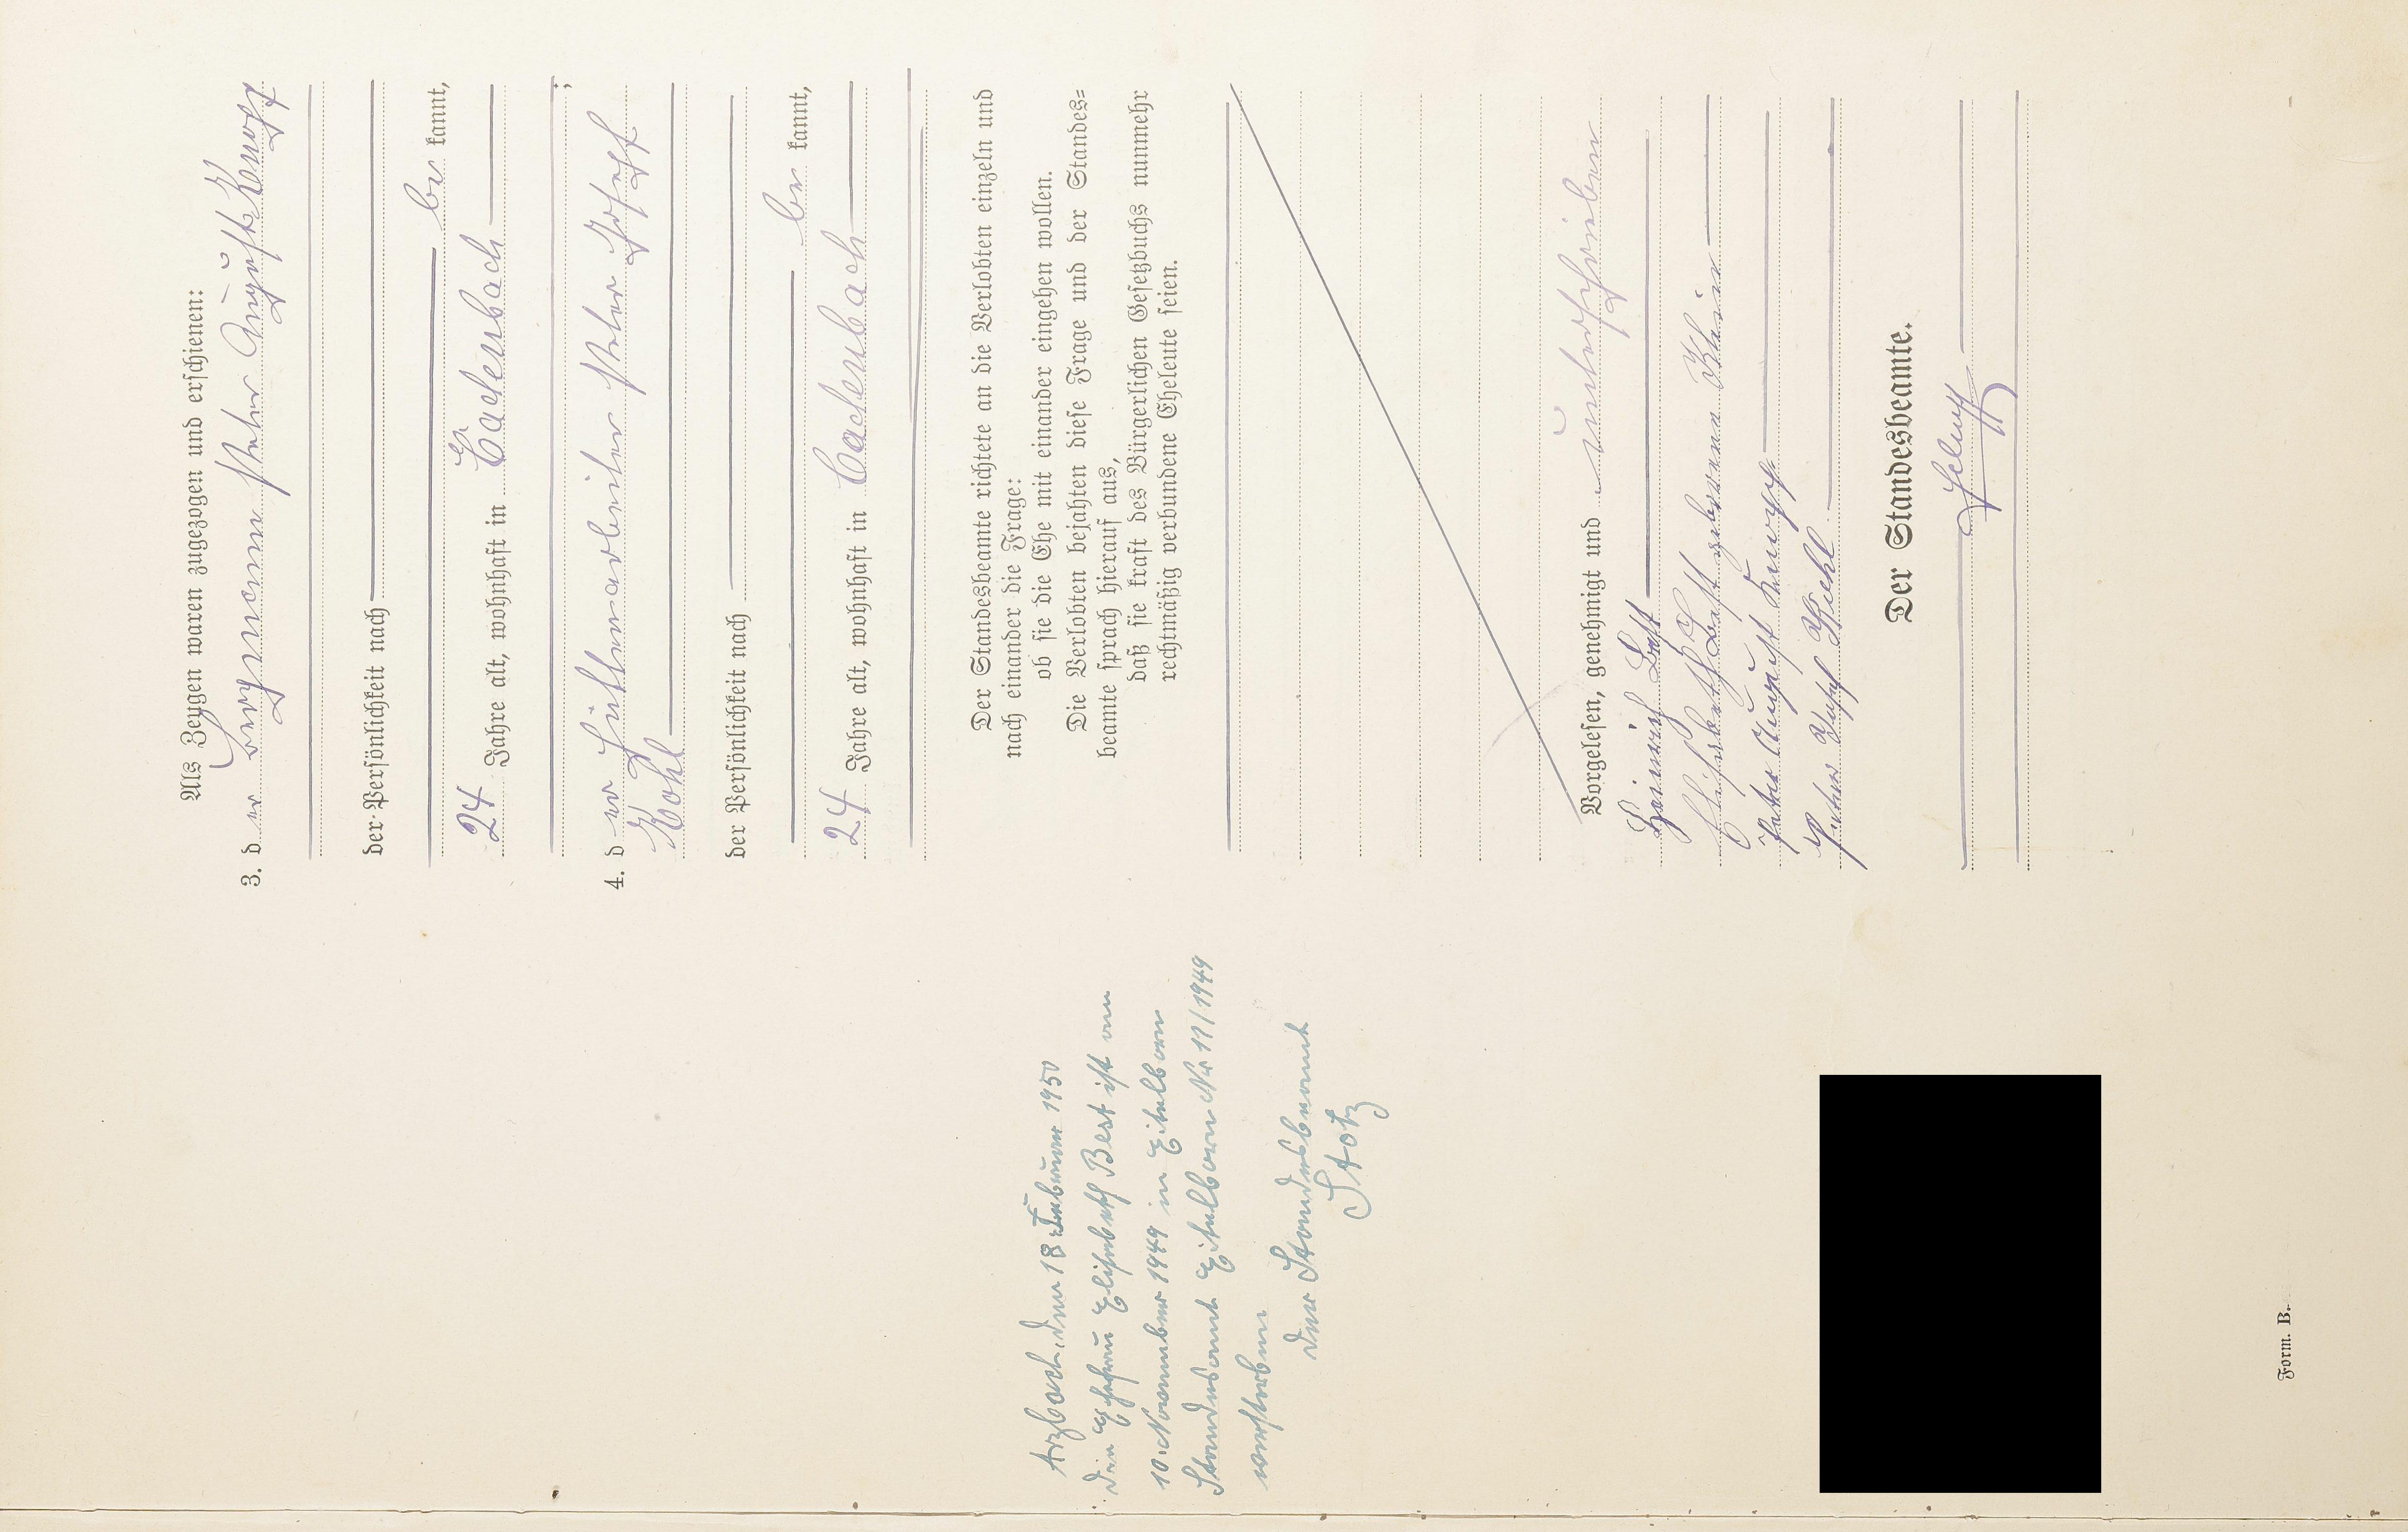 Als Zeugen waren zugezogen und erschienen:
3. der Bergmann Peter August
der Persönlichkeit nach
be kannt,
24 Jahre alt, wohnhaft in Cadenbach
;
4. der Hüttenarbeiter Peter Josef
Kohl
der Persönlichkeit nach
be kannt,
24 Jahre alt, wohnhaft in Cadenbach
Der Standesbeamte richtete an die Verlobten einzeln und
nach einander die Frage:
ob sie die Ehe mit einander eingehen wollen.
Die Verlobten bejahten diese Frage und der Standes=
beamte sprach hierauf aus,
daß sie kraft des Bürgerlichen Gesetzbuchs nunmehr
rechtmäßig verbundene Eheleute seien.
Vorgelesen, genehmigt und unterschrieben
Heinrich Best
Elisabeth Best geborene Klein
Peter August
Peter Josef Kohl
Der Standesbeamte.
Arzbach, den 18 Februar 1950
Die Ehefrau Elisabeth Best ist am
10. November 1949 in Eitelborn
Standesamt Eitelborn Nr 11/1949
verstorben
Der Standesbeamte
Stotz
Form. B.